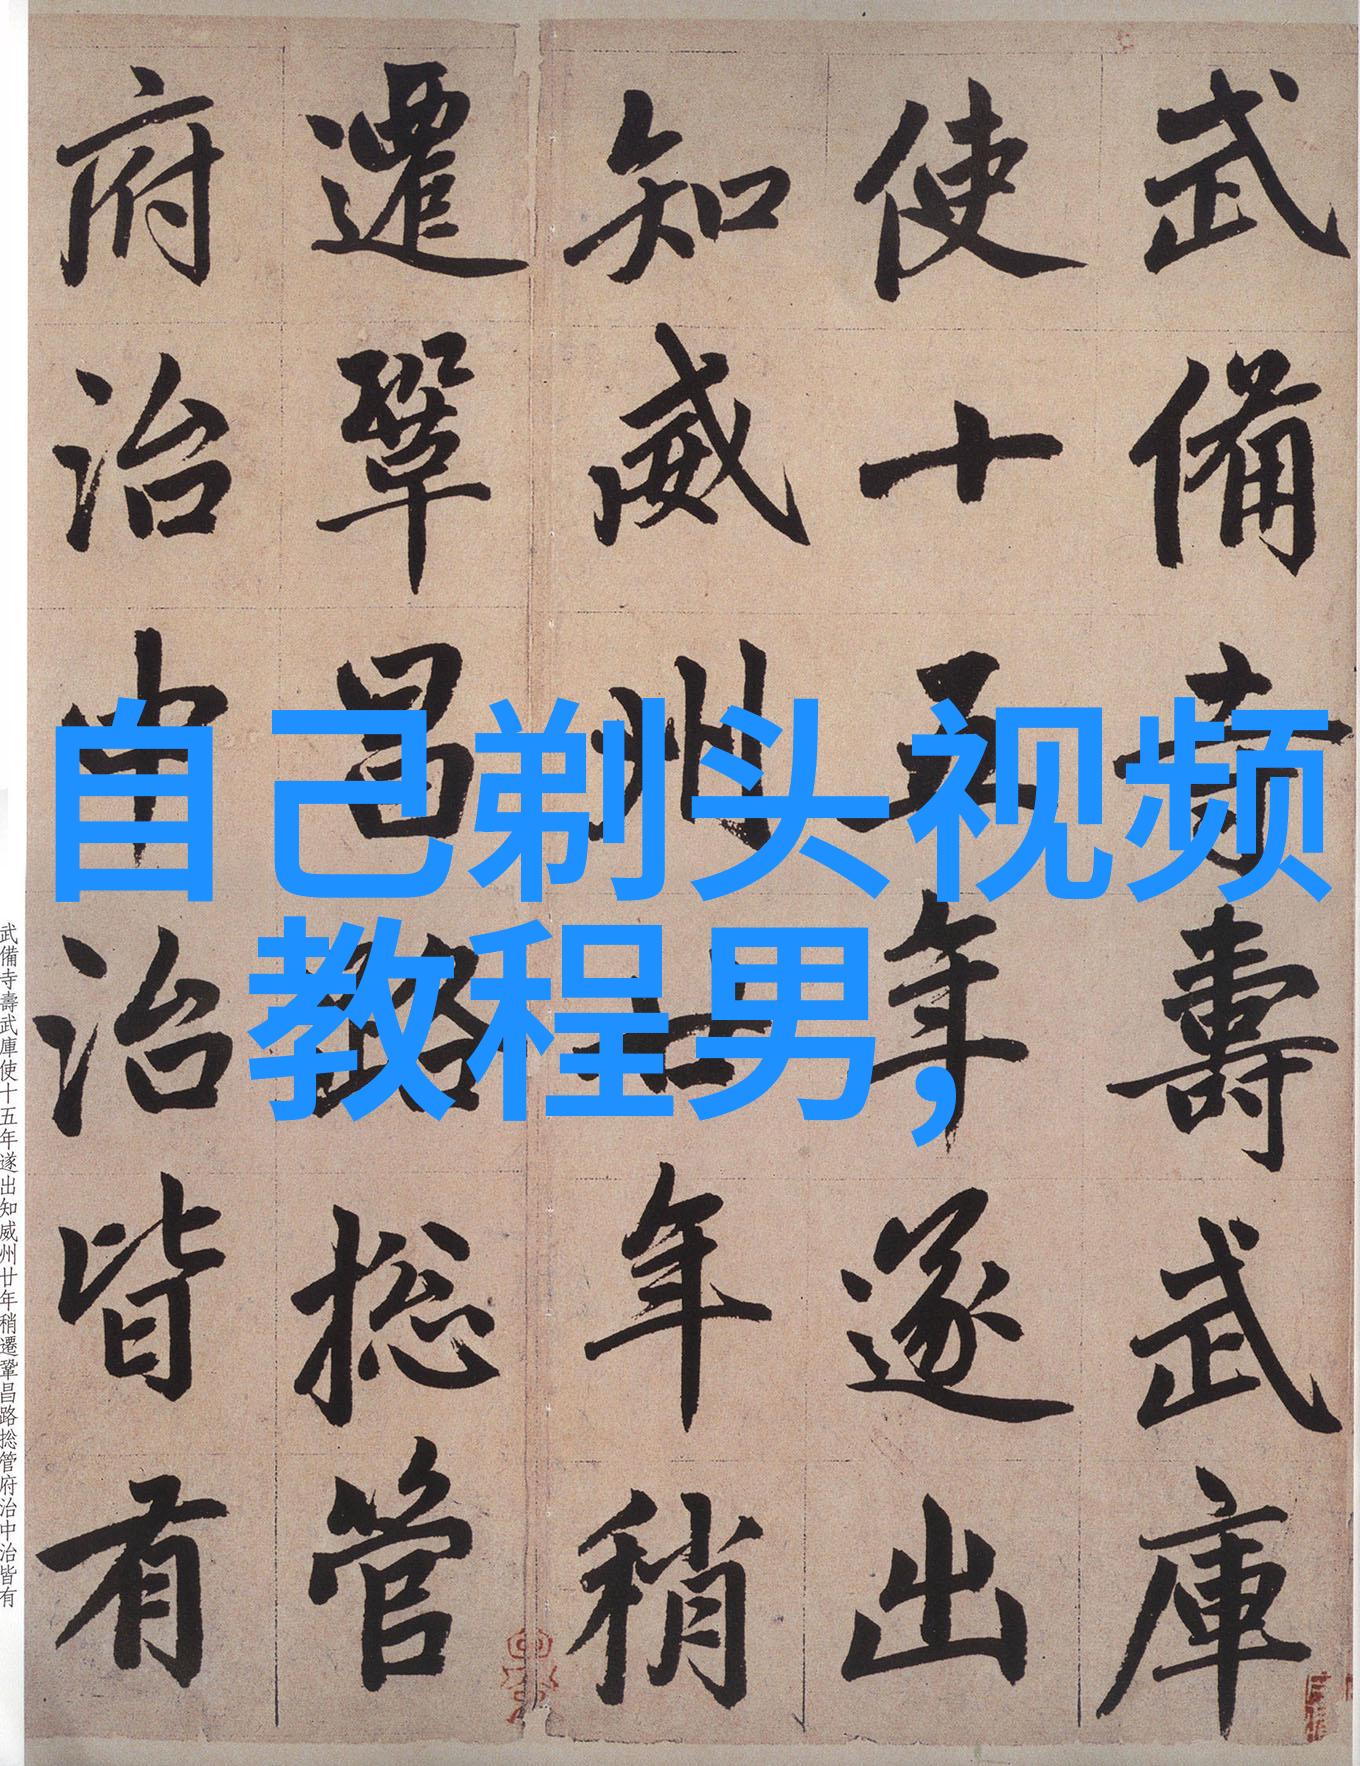 武備寺壽武庫
使十五年遂出
知威州廿年稍
遷鞏昌路捴管
府治中治皆有
自己剃头视频
教程男，
武備寺壽武庫使十五年遂出知威州廿年稍遷鞏昌路捴管府治中治皆有